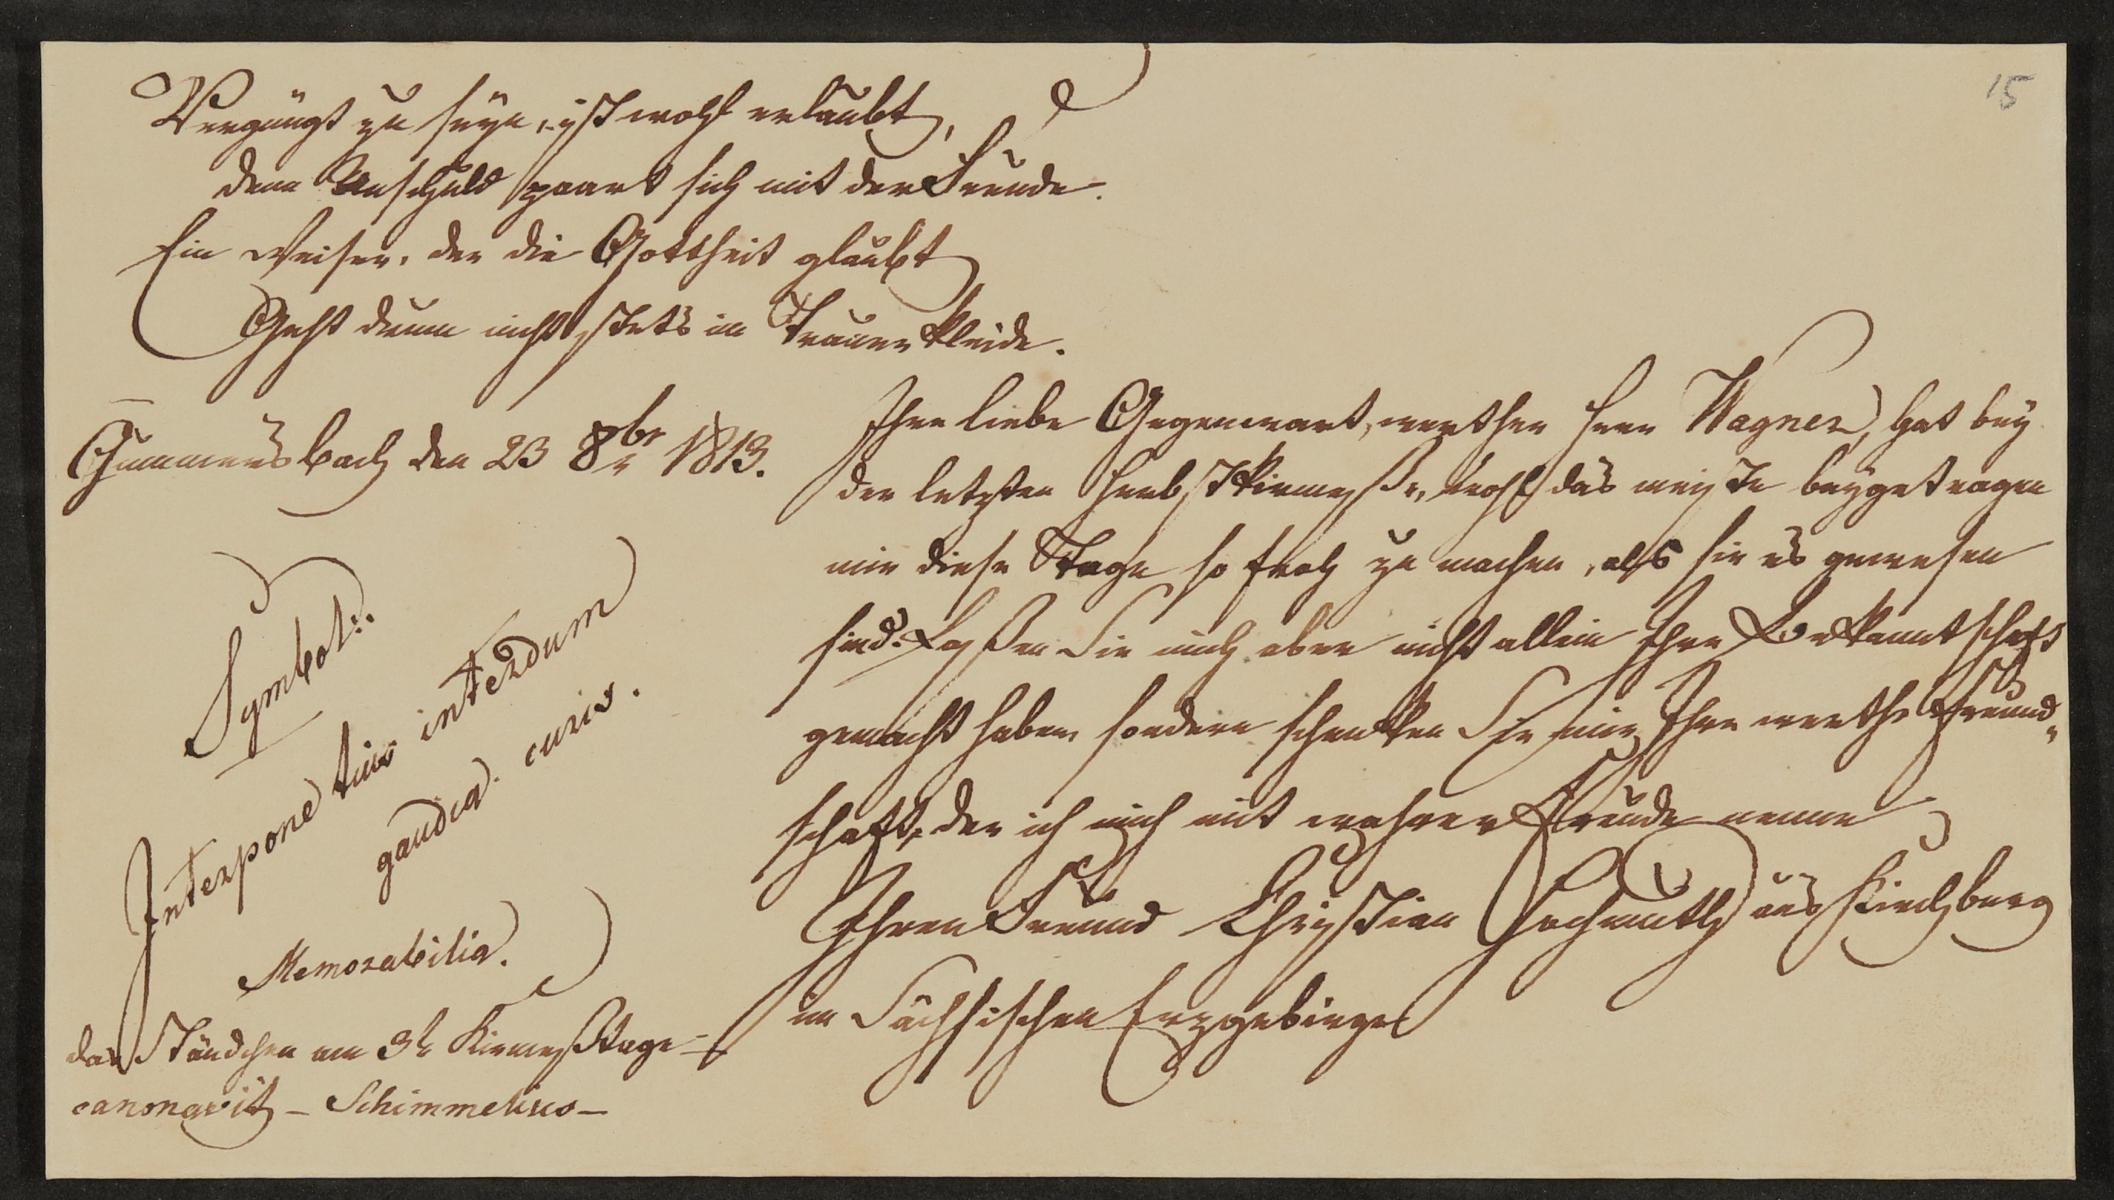 15
Vergnügt zu seyn, ist wohl erlaubt,
denn Unschuld paart sich mit der Freude.
Ein Weiser, der die Gottheit glaubt
Geht drum nicht stets im Trauerkleide.
Gummersbach den 23 8br 1813.
Symbol:.
Interpone tuis interdum
gaudia curis.
Memorabilia.
das Ständchen am 3t Kirmeßtage –
canonavit – Schimmelius –
Ihre liebe Gegenwart, werther Herr Wagner, hat bey
der letzten Herbstkirmeße, wohl das meiste beygetragen
mir diese Tage so froh zu machen, als sie es gewesen
sind. Laßen Sie mich aber nicht allein Ihre Bekanntschaft
gemacht haben, sondern schenken Sie mir Ihre werthe Freund-
schaft, der ich mich mit wahrer Freude nenne
Ihren Freund Christian Hochmuth aus Kirchberg
im Sächsischen Erzgebirge